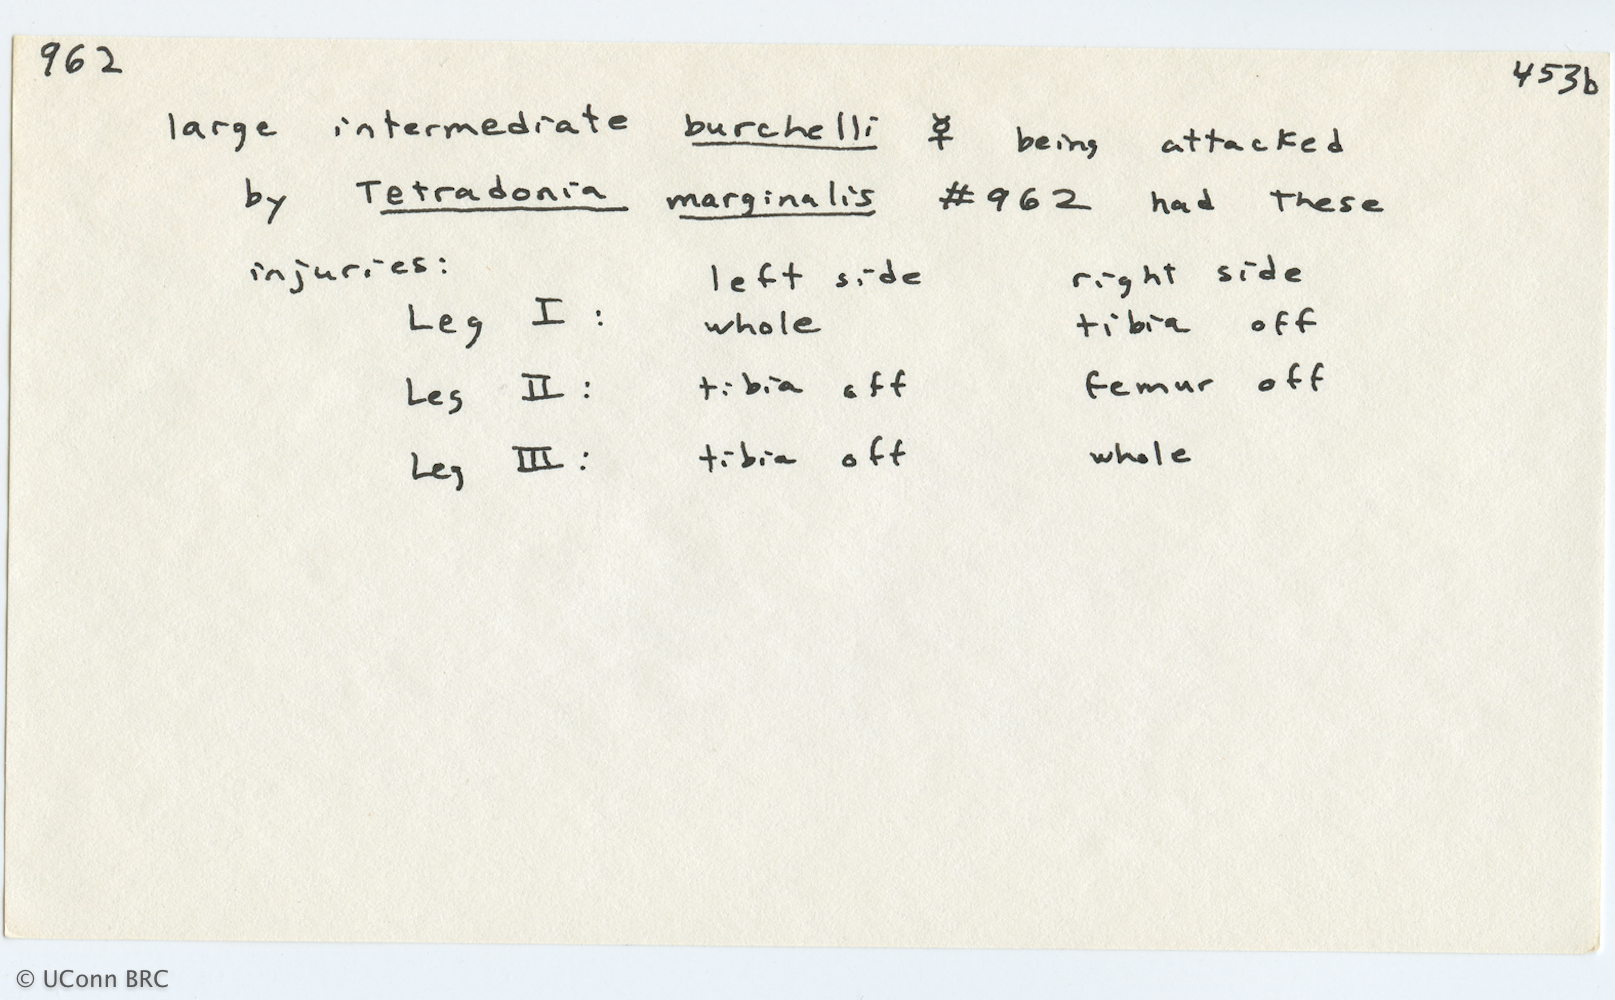 962 453b
large intermediate burchelli ☿ being attacked
by Tetradonia marginalis #962 had these
injuries: left side right side
Leg I: whole tibia off
Leg II: tibia off femur off
Leg III: tibia off whole
© UConn BRC